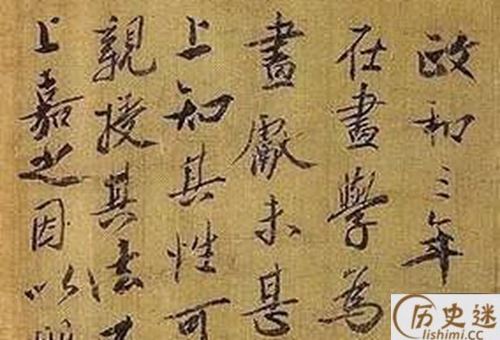 政和三年
在畫學為
畫獻未甚
上知其性可
親授其法不
上嘉之因以
历史迷
lishimi.cc